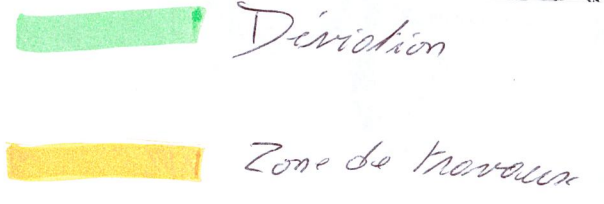 Déviation
Zone de travaux